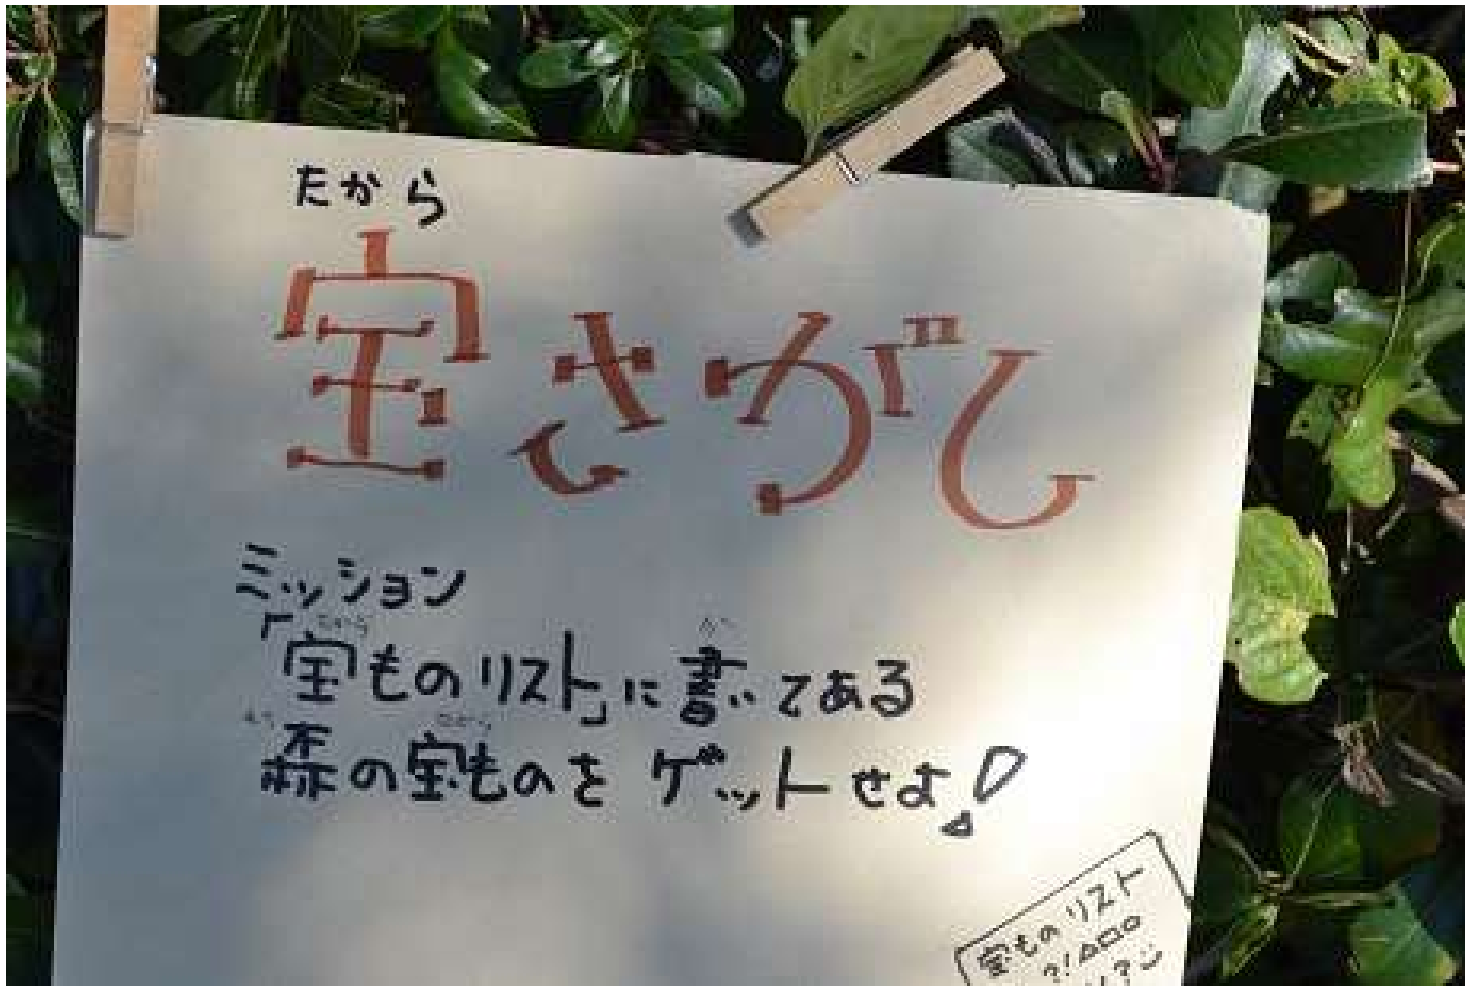 たから
宝さがし
ミッション
「宝ものリスト」に書いてある
森の宝ものをゲットせよ!
宝ものリスト
?!△□○